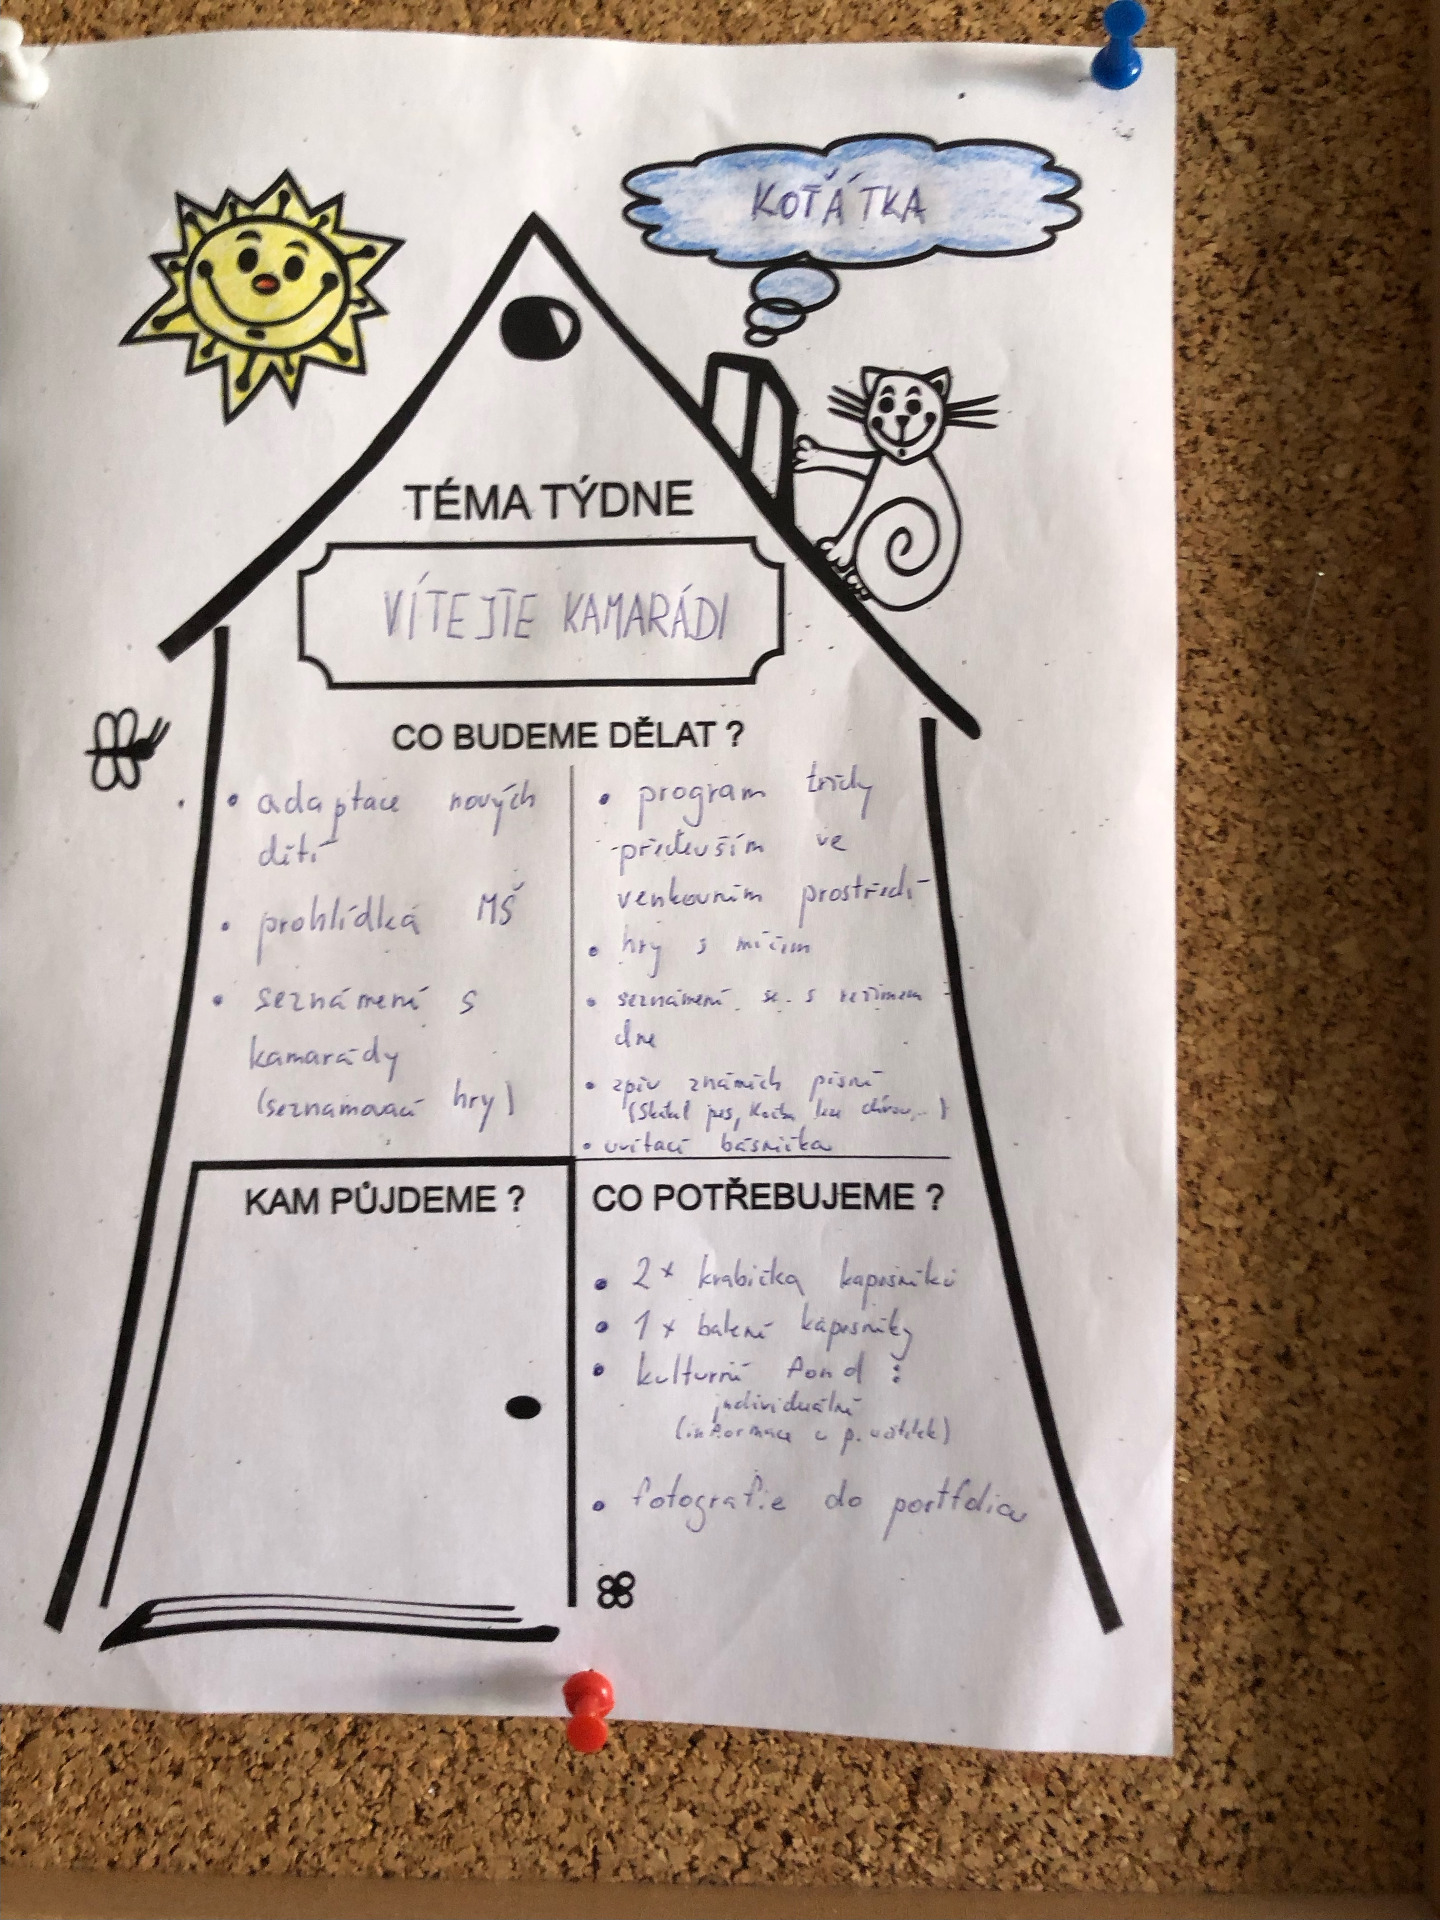 KOŤÁTKA
TÉMA TÝDNE
VÍTEJTE KAMARÁDI
CO BUDEME DĚLAT ?
• adaptace nových
dětí
• prohlídka MŠ
• seznámení s
kamarády
(seznamovací hry)
• program třídy
především ve
venkovním prostředí
• hry s míčem
• seznámení se s režimem
dne
• zpěv známých písní
(Skákal pes, Kočka leze dírou,..)
• uvítací básnička
KAM PŮJDEME ?
CO POTŘEBUJEME ?
• 2x krabička kapesníků
• 1x balení kapesníky
• kulturní fond :
individuálně
(informace u p. učitelek)
• fotografie do portfolia